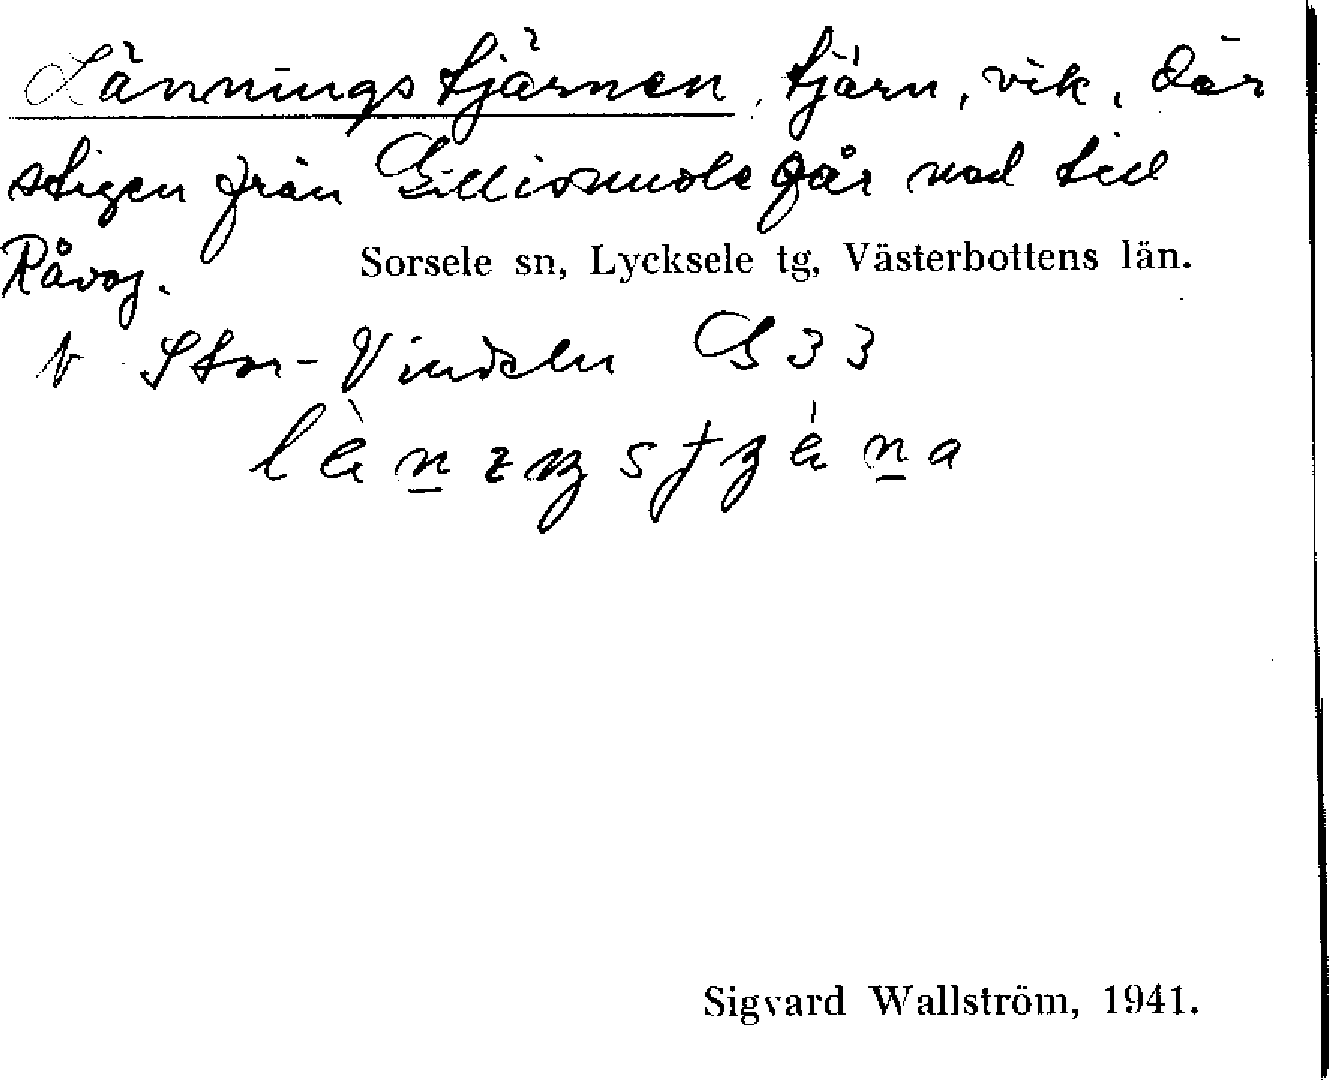 Länningstjärnen, tjärn, vik, där
stigen från Gillisnuole går ned till
Råvoj.
Sorsele sn, Lycksele tg, Västerbottens län.
Stor-Vindeln G 33
Sigvard Wallström, 1941.